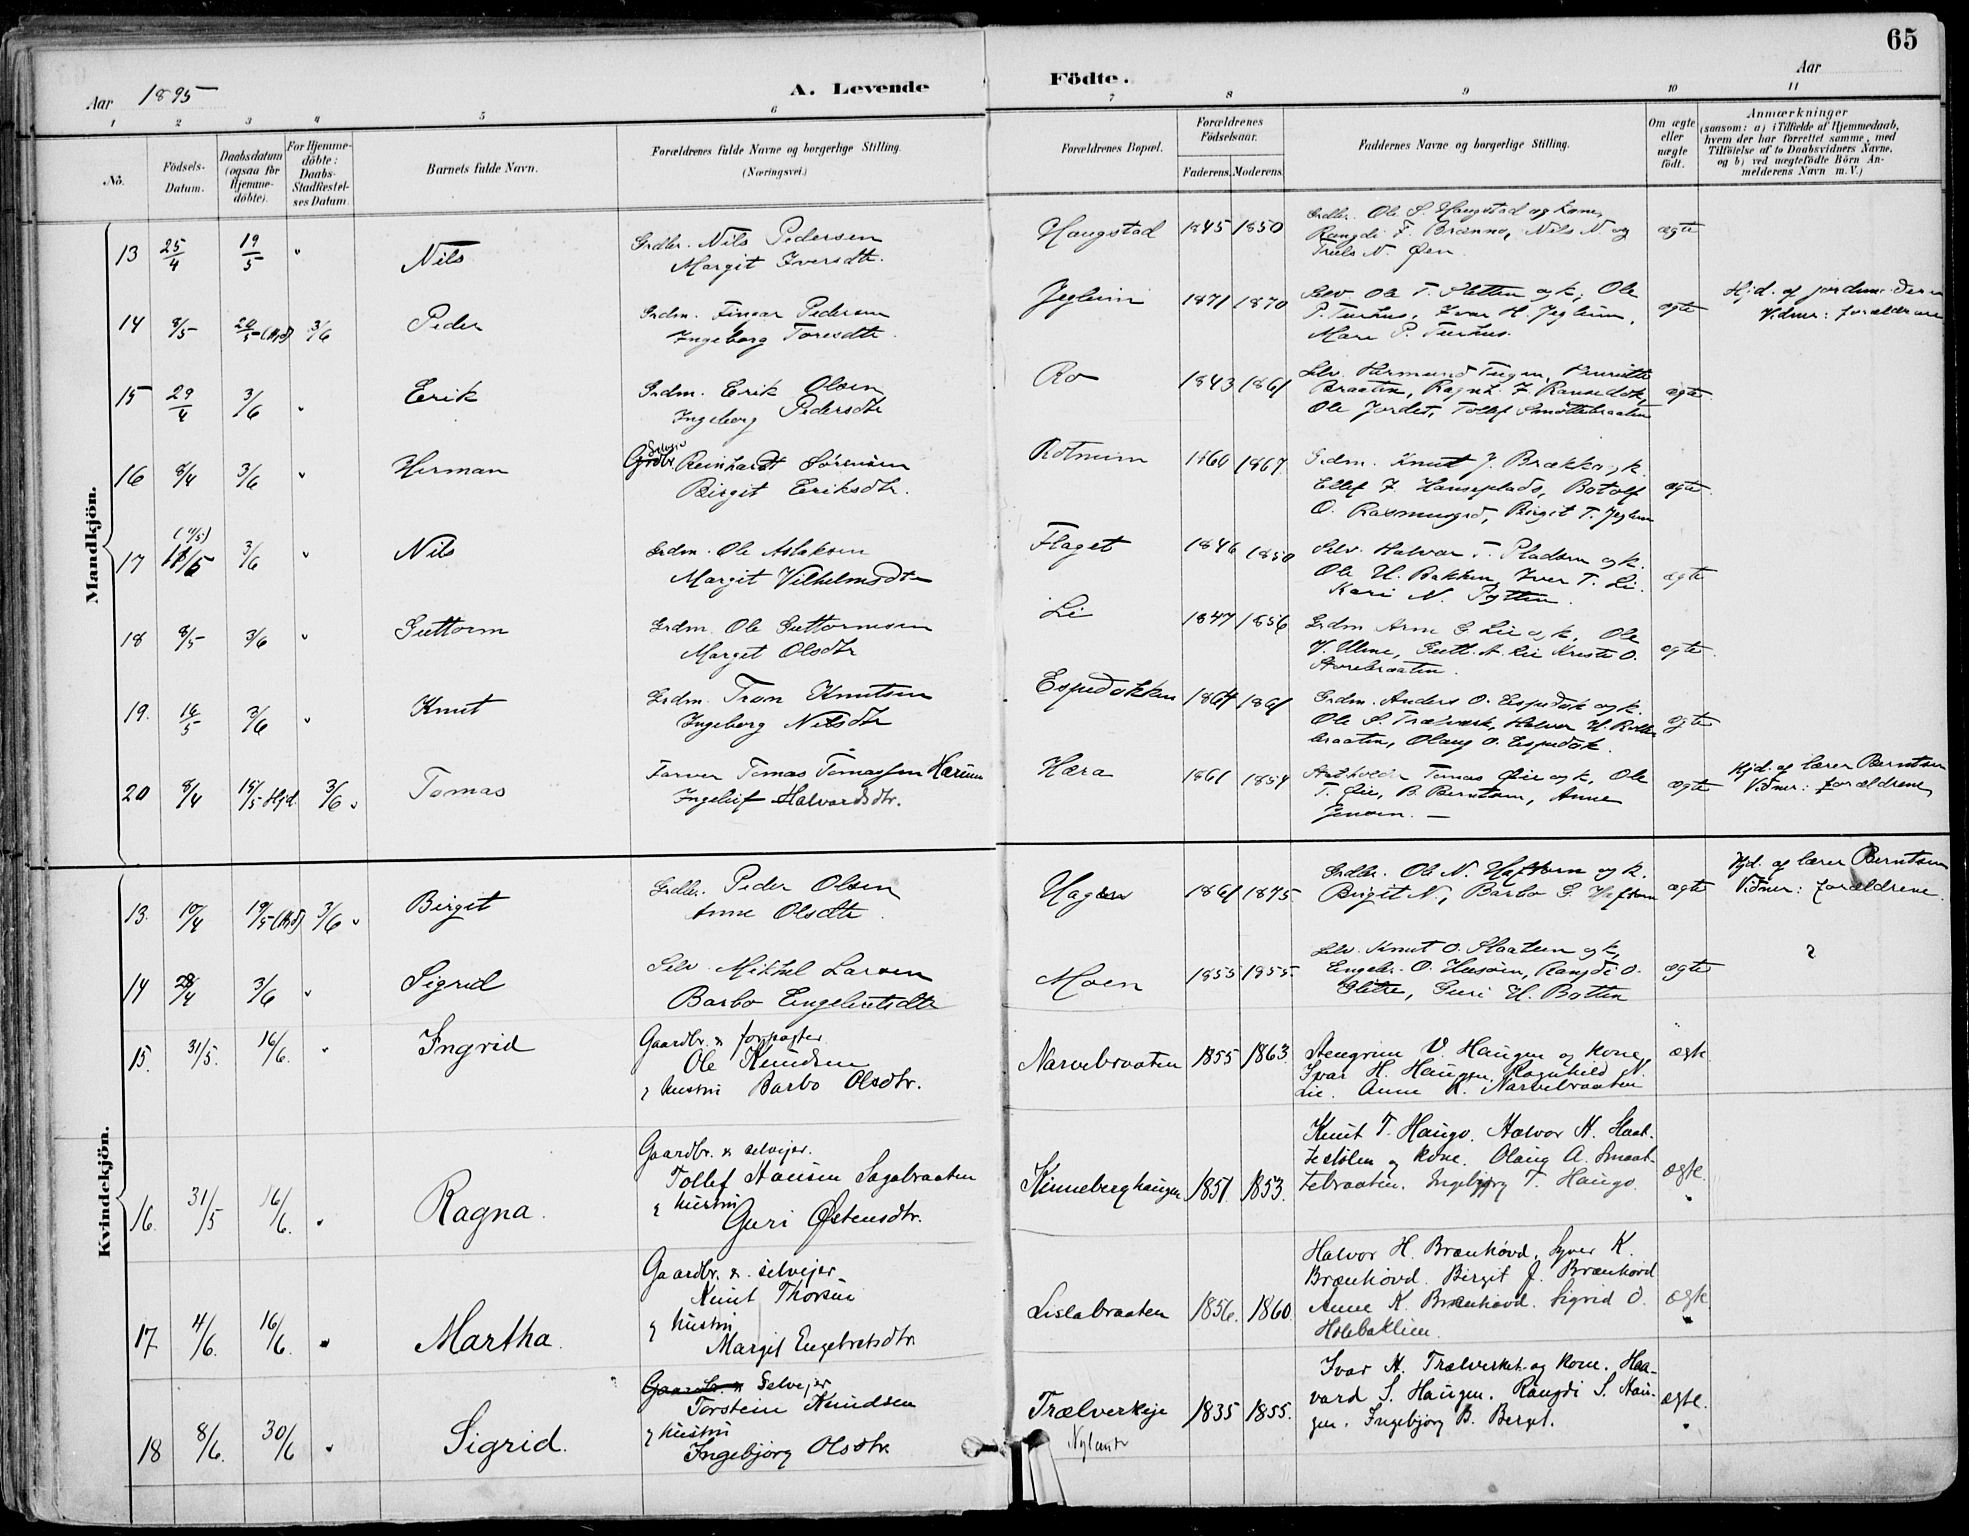 65
Aar 1895
A. Levende
Födte.
Aar
1 2 3 4 5 6 7 8 9 10 11
No.
Födsels-
Datum.
Daabsdatum
(ogsaa for
Hjemme-
döbte).
For Hjemme-
döbte:
Daabs-
Stadfæstel-
ses Datum.
Barnets fulde Navn.
Forældrenes fulde Navne og borgerlige Stilling.
(Næringsvei.)
Forældrenes Bopæl.
Forældrenes
Födselsaar.
Faderens. Moderens.
Faddernes Navne og borgerlige Stilling.
Om ægte
eller
uægte
født.
Anmærkninger
(saasom: a) i Tilfælde af Hjemmedaab,
hvem der har forrettet samme, med
Tilföielse af to Daabsvidners Navne,
og b) ved uægtefödte Börn An-
melderens Navn m. V.)
Mandkjön.
13 25/4 19/5 " Nils
Grdbr. Nils Pedersen
Margit Iversdtr.
Haugstad 1845 1850
Grdbr. Ole S. Haugstad og kone,
Rangdi F. Brænno, Nils N. og
Truls N. Øen
ægte
14 8/5 (Hjd) 3/6 Peder
Grdm. Einar Pedersen
Ingeborg Toresdtr.
Jegleim 1871 1870
Selv. Ole T. Sletten og k., Ole
P. Turhus, Ivar H. Jegleim,
Mari P. Turhus.
ægte
Hjd. af jordmoderen
Vidner: forældrene
15 29/4 3/6 " Erik
Grdm. Erik Olsen
Ingeborg Pedersdtr
Ro 1843 1861
Ole Jordet, Tollef Smöttebraaten
ægte.
16 8/4 3/6 " Herman
Grdbr. Reinhardt Sörensen
Birgit Eriksdtr.
Rotneim 1860 1867
Grdm. Knut J. Brækka og k.
Ellef J. Hanseplads, Botolf
O. Rasmusgrd, Birgit T. Jegleim
ægte.
17 11/5 3/6 " Nils
Grdm. Ole Aslaksen
Margit Vilhelmsdtr
Flaget 1846 1850
Selv. Halvor T. Pladsen og k.
Ole H. Bakken, Iver T. Li.
Kari N. Pytten.
ægte
18 8/5 3/6 " Guttorm
Grdm. Ole Guttormsen
Marget Olsdtr
Li 1847 1856
Grdm Arne G Lie og k. Ole
V. Ulme, Gutt. A. Lie Kristi O.
ægte.
19. 16/5 3/6 " Knut
Grdm. Tron Knutsen
Ingeborg Nilsdtr
Espedokken 1864 1861
Grdm. Anders O. Espedok og k.
Ole S. Trælverk, Halvor H.
braaten, Olaug O. Espedok.
ægte
20 8/4 15/5 Hjd. 3/6 " Tomas
Farver Tomas Tomassen Hæreim
Ingeleif Halvordsdtr.
Hæra 1861 1854
Tomas Øie og k., Ole
T. Øie, B. Berntsen, Anne
Jensen. —
ægte
Hjd. af lærer Berntsen
Vidner: forældrene,
Kvindekjön.
13. 10/4 19/5 (Hjd) 3/6 " Birgit
Grdbr. Peder Olsen
Anne Olsdtr.
Hagen 1861 1875
Grdbr. Ole N. Haftorn og k.
Birgit N., Barbo G. Haftorn
ægte
Hjd. af lærer Berntsen
Vidner: forældrene.
14 28/4 3/6 " Sigrid
Selv. Mikkel Larsen
Barbo Engebretsdtr
Moen 1855 1855.
Selv. Knut O. Plaaten og k,
Engebr. O. Husöien, Rangdi O.
Slette, Guri H. Botten
ægte
?
15. 31/5. 16/6. " Ingrid
Gaardbr. & forpagter
Ole Knudsen
& hustru Barbo Olsdtr.
Narvebraaten 1855 1863.
Stengrim V. Haugen og kone,
Ivar H. Haugen, Ragnhild N.
Lie. Anne K. Narvebraaten
ægte.
16. 31/5 16/6. " Ragna.
Gaardbr. & selvejer.
Tollef Hansen Sagabraaten
& hustru
Guri Østensdtr.
Kinneberghaugen 1851. 1853.
Knut T. Haugo. Halvor H. Haat-
testølen og kone. Olaug A. Smaat-
tebraaten. Ingebjørg T. Haugo.
ægte.
17 4/6. 16/6. " Martha.
Gaardbr. & selvejer
Knut Thorsen
& hustru
Margit Engebretsdtr.
Lislabraaten 1856. 1860.
Halvor H. Brænhovd, Syver K.
Brænhovd. Birgit J. Brænhovd
Anne K. Brænhovd. Sigrid O.
Holebaklien.
ægte
"
18 8/6. 30/6 " Sigrid.
Gaardbr. & Selvejer
Torstein Knudsen
& hustru
Ingebjørg Olsdtr.
Trælverkeje 1835 1855.
Nylænde
Ivar H. Trælverket og kone. Haa-
vard S. Haugen. Rangdi S. Hau-
gen. Ingebjørg B. Berget.
ægte.
"